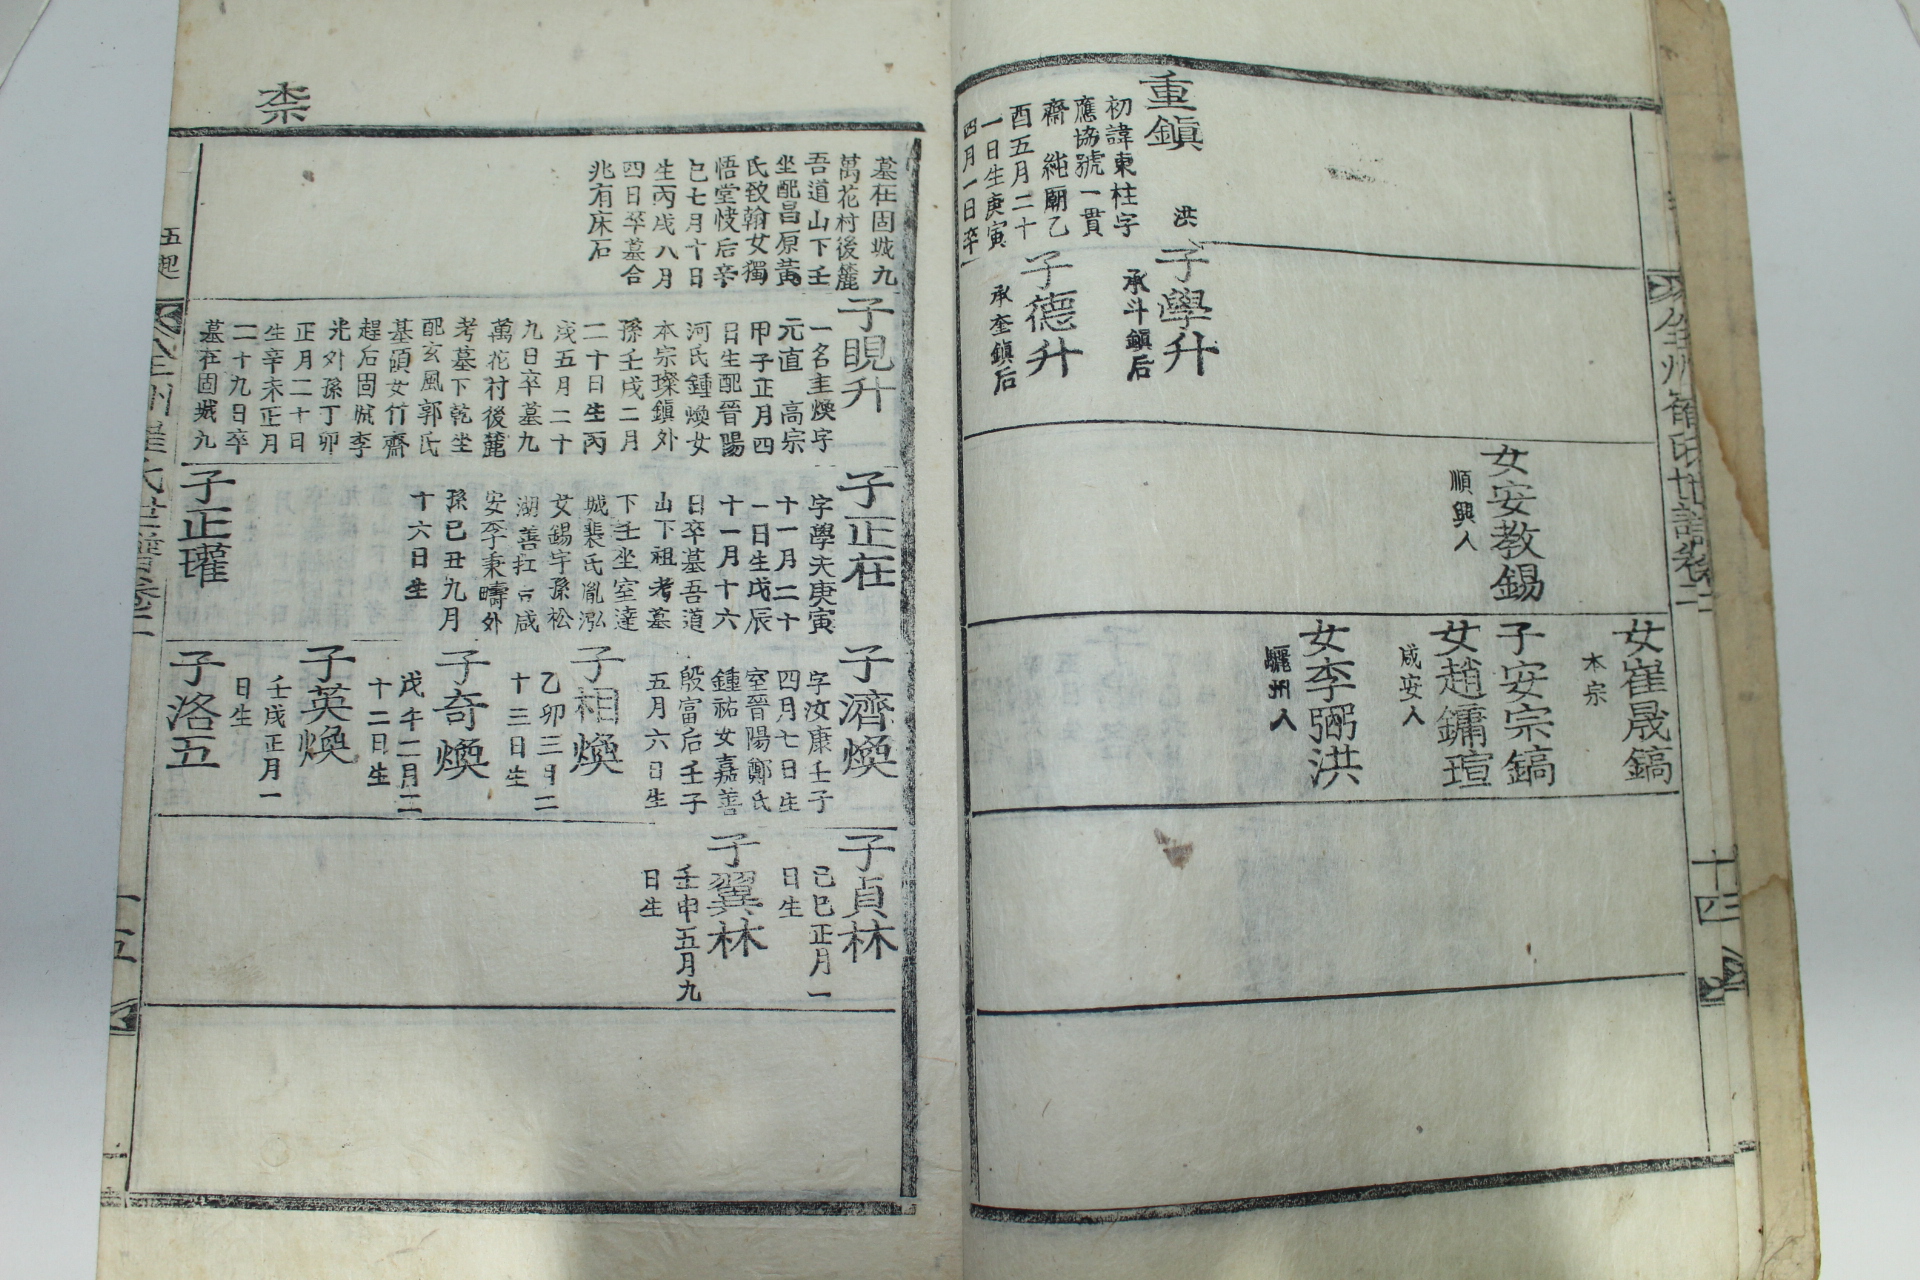 重鎭
初諱東柱字
應協號一貫
齋 純廟乙
酉五月二十
一日生庚寅
四月一日卒
洪
子學升
承斗鎭后
子德升
承奎鎭后
女安教錫
順興人
女崔晟鎬
本宗
子安宗鎬
女趙鏞瑄
咸安人
女李弼洪
驪州人
全州崔氏世譜卷二
十四
柰
墓在固城九
萬花村後麓
吾道山下壬
坐配昌原黃
氏致翰女獨
悟堂悏后辛
巳七月十日
生丙戌八月
四日卒墓合
兆有床石
子晛升
一名圭煥字
元直 高宗
甲子正月四
日生配晉陽
河氏鍾煥女
本宗璨鎭外
孫壬戌二月
二十日生丙
戌五月二十
九日卒墓九
萬花村後麓
考墓下乾坐
配玄風郭氏
基碩女竹齋
趕后固城李
光外孫丁卯
正月二十日
生辛未正月
二十九日卒
墓在固城九
子正在
字學夫庚寅
十一月二十
一日生戊辰
十一月十六
日卒墓吾道
山下祖考墓
下壬坐室達
城裴氏胤泓
女錫宇孫松
湖善扛后咸
安李秉疇外
孫己丑九月
十六日生
子正瓘
子濟煥
字汝康壬子
四月七日生
室晉陽鄭氏
鍾祐女嘉善
殷富后壬子
五月六日生
子相煥
乙卯三月二
十三日生
子奇煥
戊午二月二
十二日生
子英煥
壬戌正月一
日生
子洛五
子貞林
己巳正月一
日生
子翼林
壬申五月九
日生
全州崔氏世譜卷二
十五